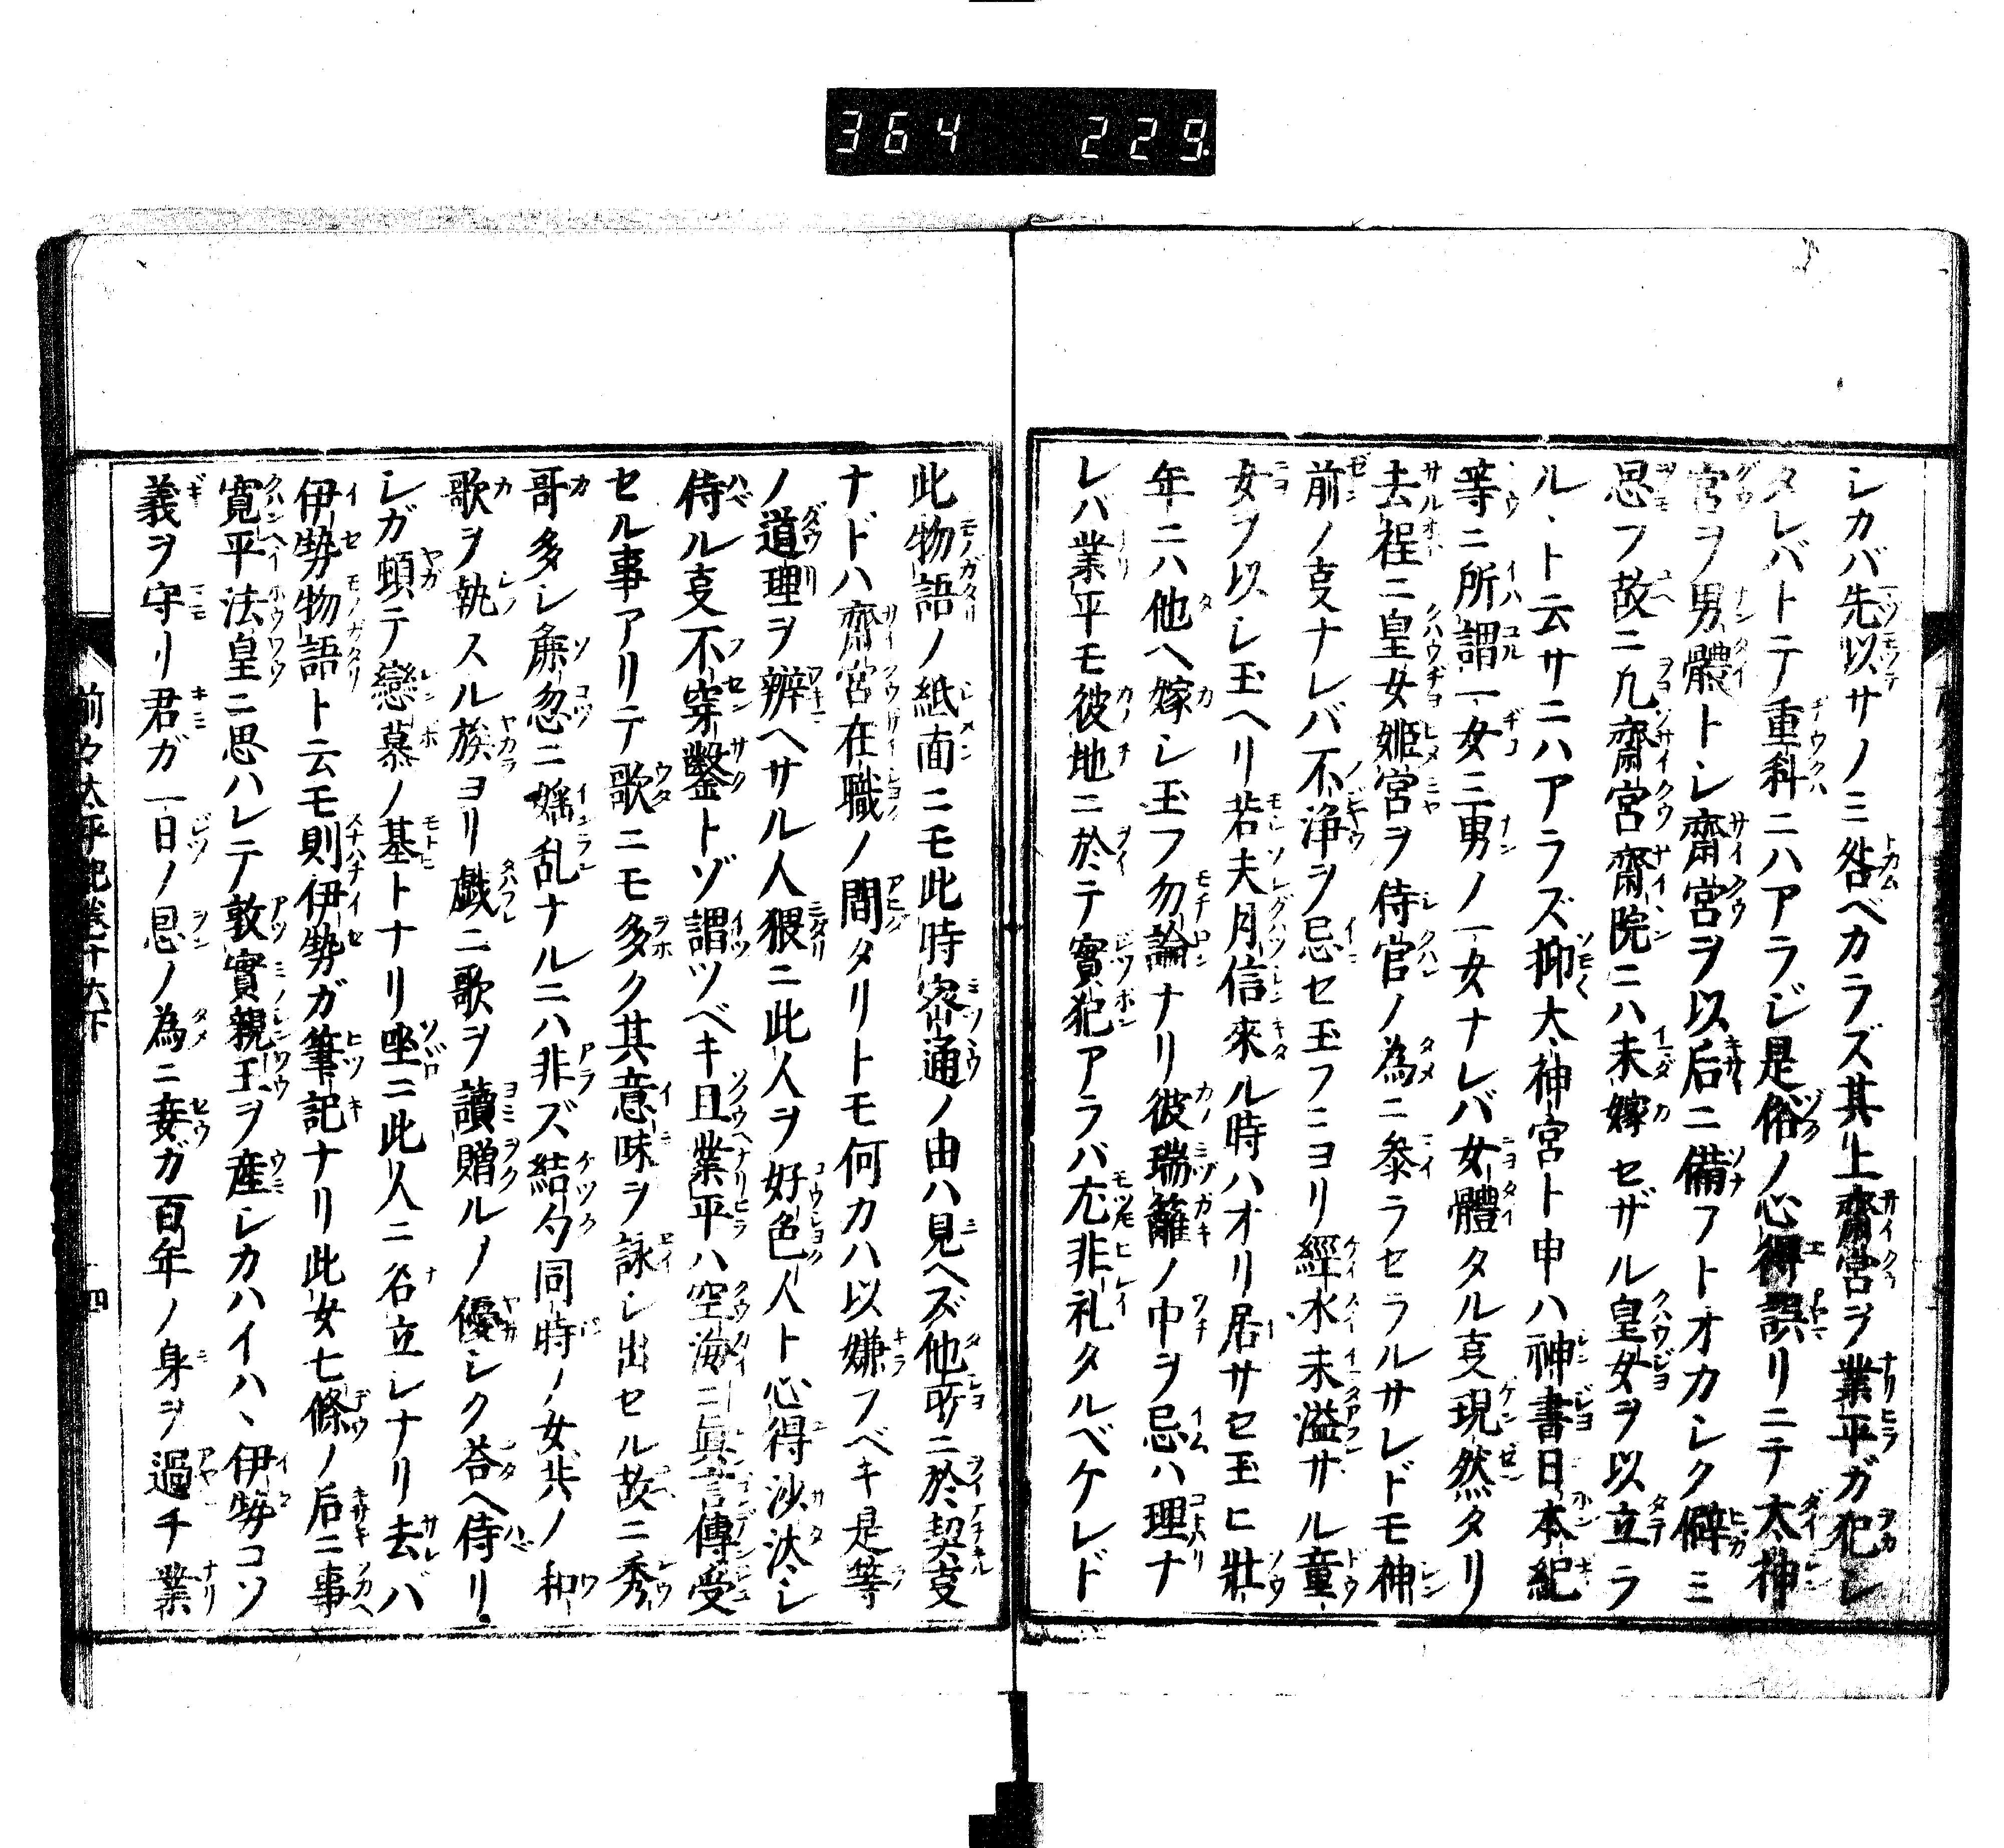 364 229.
シカバ先以サノミ咎ベカラズ其上齋宮ヲ業平ガ犯シ
タレバトテ重科ニハアラジ是俗ノ心得誤リニテ太神
宮ヲ男體トシ齋宮ヲ以后ニ備フトオカシク僻ミ
思フ故ニ凢齋宮齋院ニハ未嫁セザル皇女ヲ以立ラ
ルヽト云サニハアラズ抑太神宮ト申ハ神書日本紀
等ニ所謂一女三男ノ一女ナレバ女體タル㕝現然タリ
去程ニ皇女姫宮ヲ侍官ノ為ニ参ラセラルサレドモ神
前ノ㕝ナレバ不浄ヲ忌セ玉フニヨリ經水未溢サル童
女ヲ以シ玉ヘリ若夫月信來ル時ハオリ居サセ玉ヒ壯
年ニハ他ヘ嫁シ玉フ勿論ナリ彼瑞籬ノ中ヲ忌ハ理ナ
レバ業平モ彼地ニ於テ實犯アラバ尤非礼タルベケレド
此物語ノ紙面ニモ此時密通ノ由ハ見ヘズ他所ニ於契㕝
ナドハ齋宮在職ノ間タリトモ何カハ以嫌フベキ是等
ノ道理ヲ辨ヘサル人猥ニ此人ヲ好色人ト心得沙汰シ
侍ル㕝不穿鑿トゾ謂ツベキ且業平ハ空海ニ眞言傳受
セル事アリテ歌ニモ多ク其意味ヲ詠シ出セル故ニ秀
哥多シ麁忽ニ婬乱ナルニハ非ズ結句同時ノ女共ノ和
歌ヲ執スル族ヨリ戯ニ歌ヲ讀贈ルノ優シク荅ヘ侍リ
シガ頓テ戀慕ノ基トナリ坐ニ此人ニ名立シナリ去バ
伊勢物語ト云モ則伊勢ガ筆記ナリ此女七條ノ后ニ事
寛平法皇ニ思ハレテ敦實親王ヲ産シカハイハヽ伊勢コソ
義ヲ守リ君ガ一日ノ恩ノ為ニ妾ガ百年ノ身ヲ過チ業
前々太平記卷十六下 四